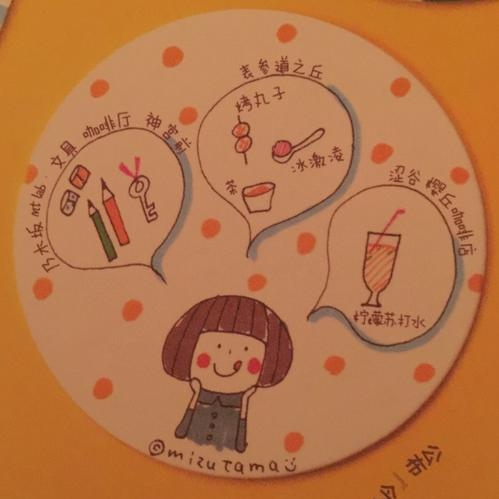 乃木坂 mt lab. 文具 咖啡厅 神宫前
表参道之丘
烤丸子
冰激凌
茶
涩谷 樱丘咖啡店
柠檬苏打水
©mizutama
公布「今